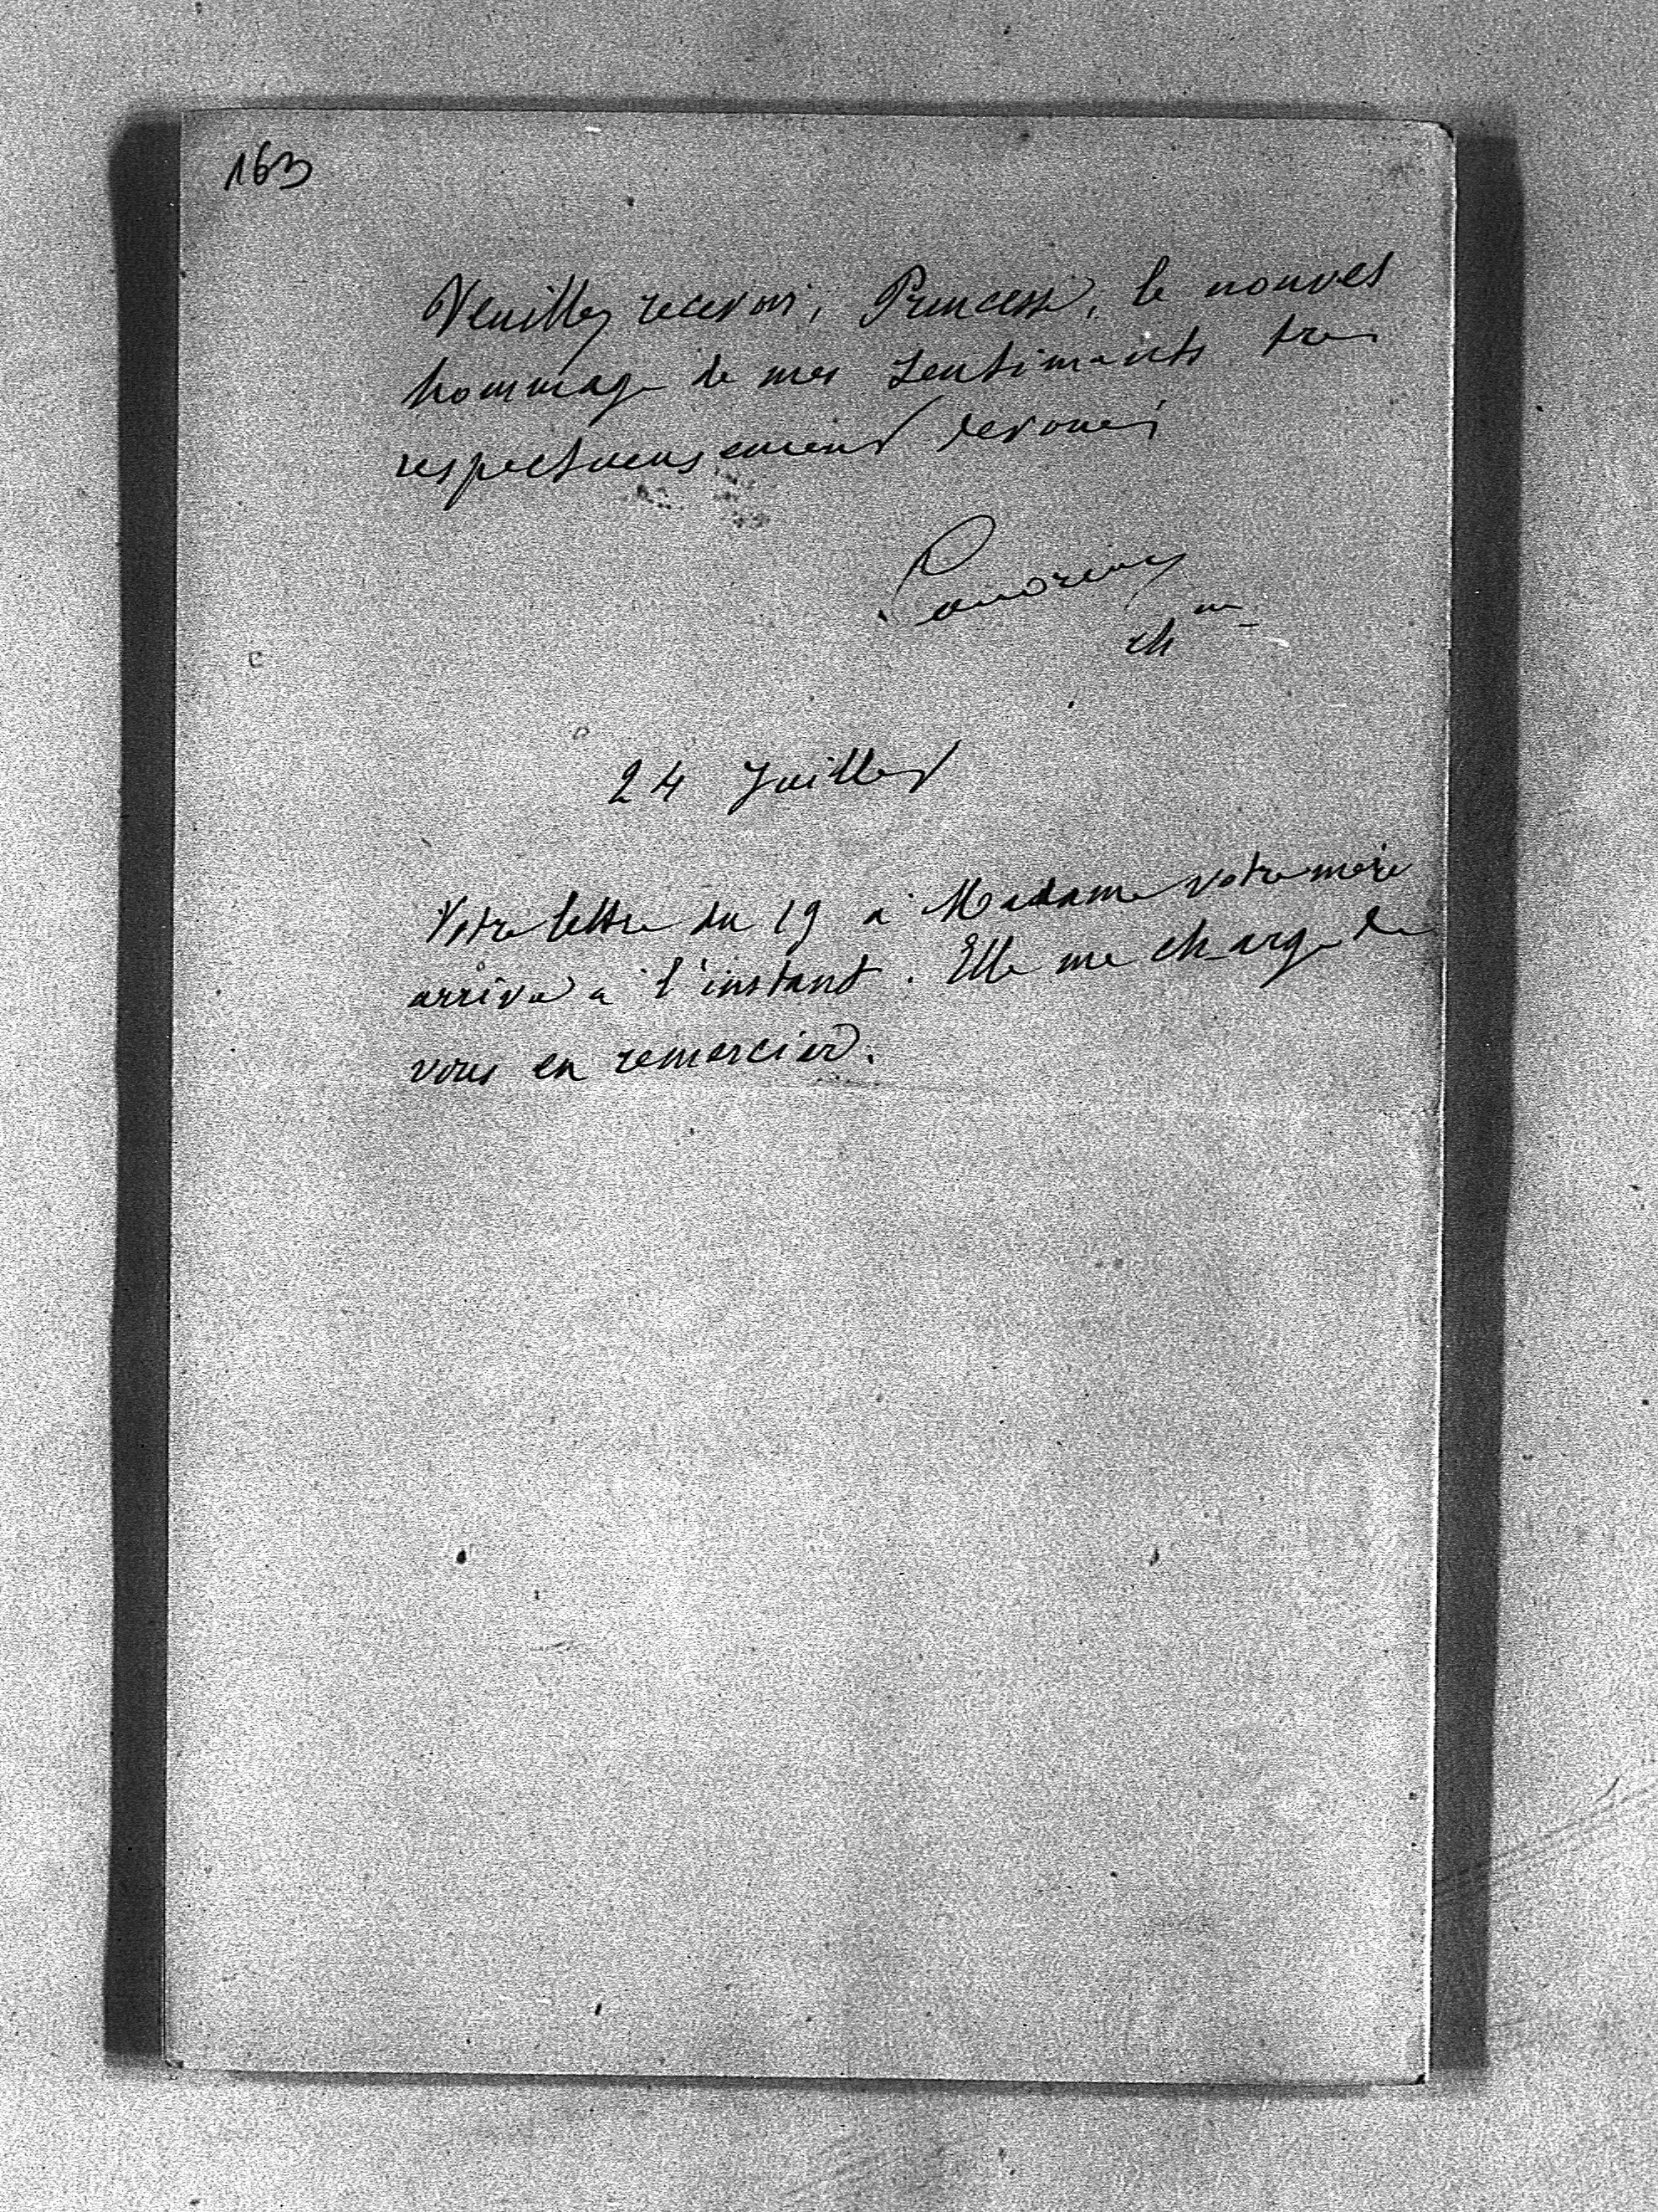 163
Veuillez recevoir, Princesse, le nouvel
hommage de mes sentiments tres
respectueusement devoués
chne
24 Juillet
Votre lettre du 19 à Madame votre mère
arrive à l'instant. Elle me charge de
vous en remercier.